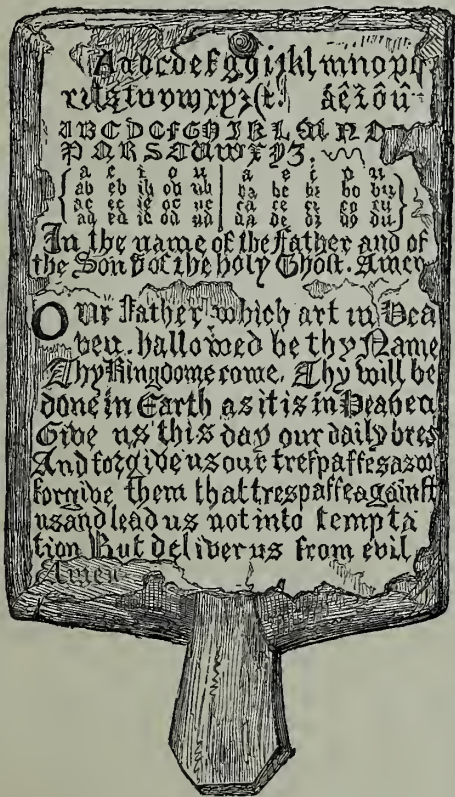 Aabcdefghijklmnopq
rzſstuvwxyz &c. áêîôû
ABCDEFGHIKLMNO
PQRSTUWXYZ.
a e i o u a e i o u
ab eb ib ob ub ba be bi bo bu
ac ec ic oc uc ca ce ci co cu
ad ed id od ud da de di do du
In the name of the Father and of
the Son & of the holy Ghoſt. Amen
Our Father which art in Hea
ven. hallowed be thy Name
Thy Kingdome come, Thy will be
done in Earth as it is in Heaven
Give us this day our daily bres
And forgive us our treſpaſſes as we
forgive them that treſpaſſe againſt
us and lead us not into tempta
tion But deliver us from evil
Amen